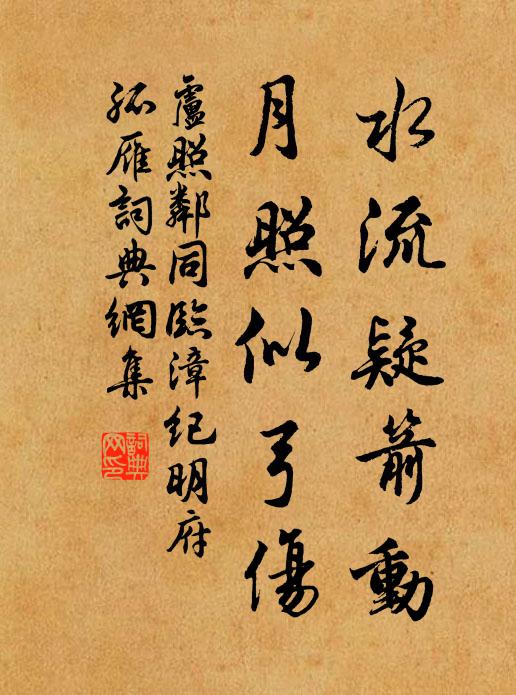 水流疑箭動
月照似弓傷
盧照鄰同臨漳紀明府
孤雁詞典網集
詞典网印